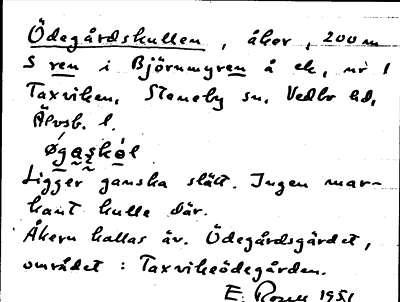 Ödegårdskullen, åker, 200 m
S ren i Björnmyren å ek, nr 1
Taxviken, Steneby sn, Vedbo hd,
Älvsb. l.
Ligger ganska slätt. Ingen mar-
kant kulle där.
Åkern kallas äv. Ödegårdsgärdet,
området: Taxvikeödegården.
E. 1951